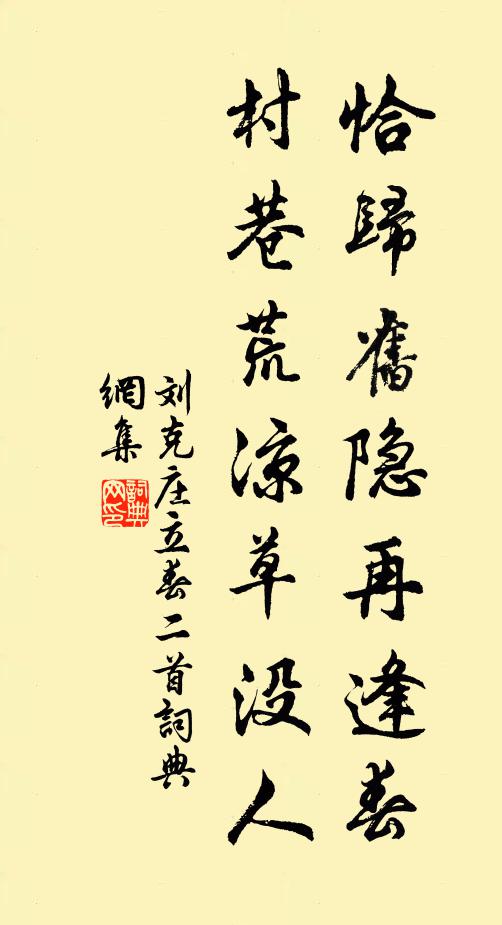 恰歸舊隐再逢春
村巷荒凉草没人
刘克庄立春二首詞典
網集
詞典
网印